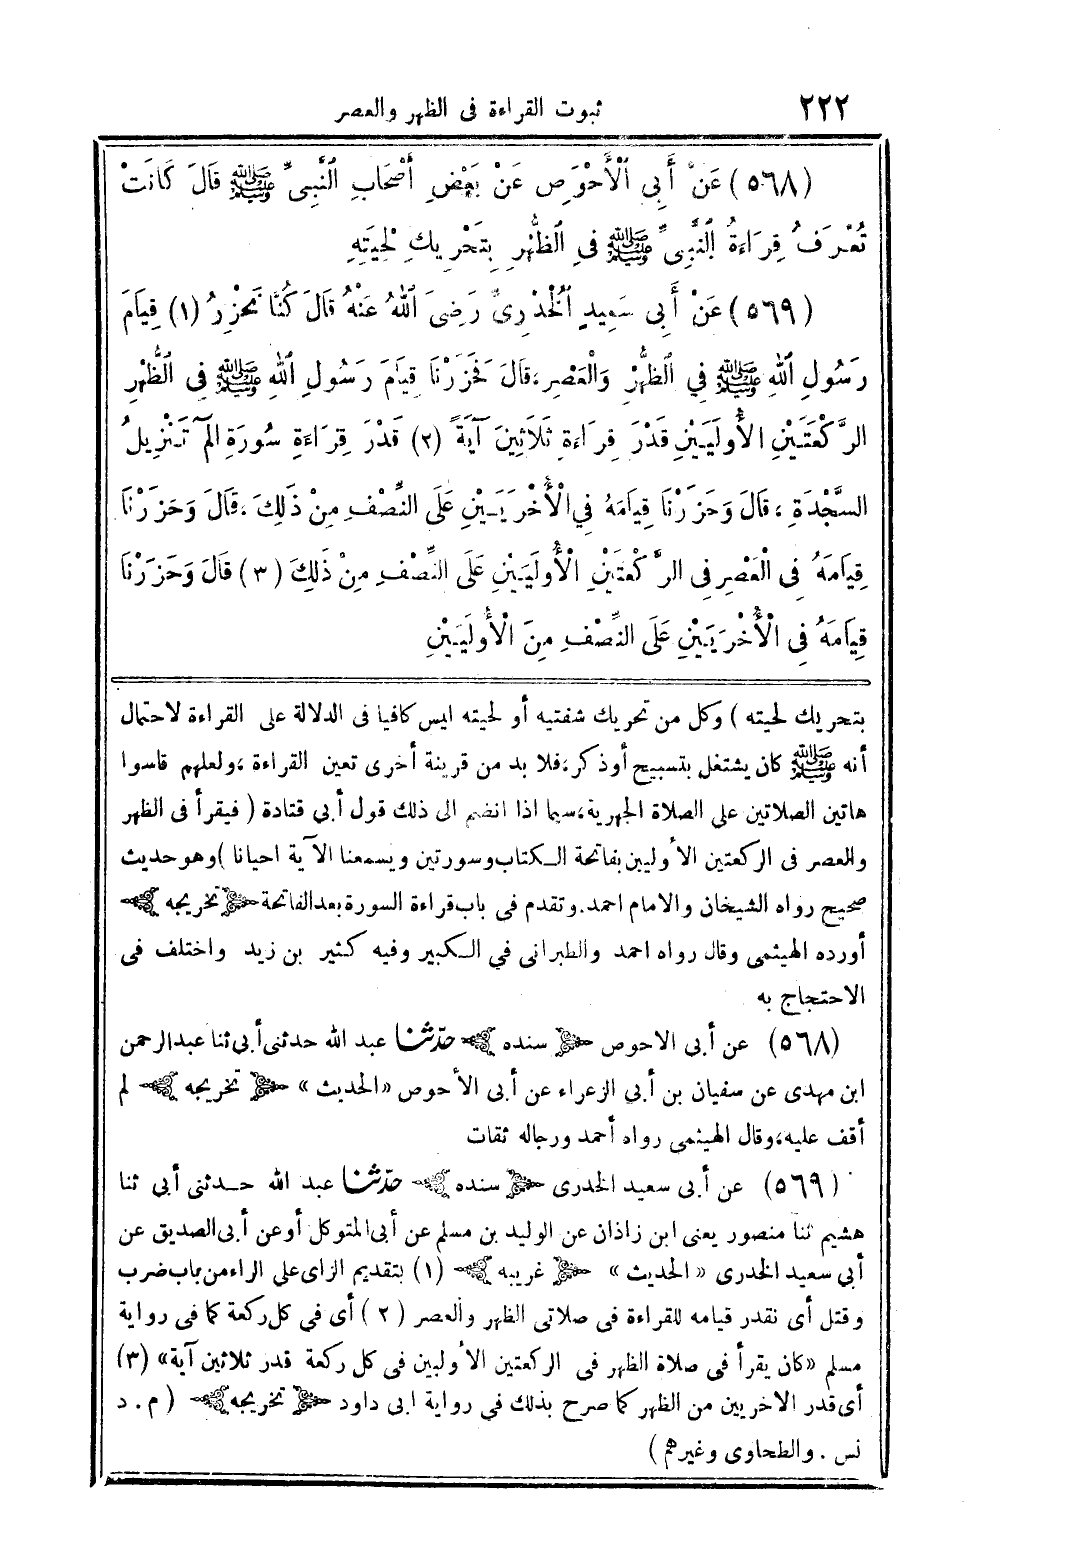 ٢٢٢ ثبوت القراءة فى الظهر والعصر
(٥٦٨) عَنْ أَبِى الْأَحْوَصِ عَنْ بَعْضِ أَصْحَابِ النَّبِىِّ ﷺ قَالَ كَانَتْ
تُعْرَفُ قِرَاءَةُ النَّبِىِّ ﷺ فِى الظُّهْرِ بِتَحْرِيكِ لِحْيَتِهِ
(٥٦٩) عَنْ أَبِى سَعِيدٍ الْخُدْرِىِّ رَضِىَ اللهُ عَنْهُ قَالَ كُنَّا نَحْزِرُ (١) قِيَامَ
رَسُولِ اللهِ ﷺ فِي الظُّهْرِ وَالْعَصْرِ، قَالَ فَحَزَرْنَا قِيَامَ رَسُولِ اللهِ ﷺ فِى الظُّهْرِ
الرَّكْعَتَيْنِ الأُولَيَيْنِ قَدْرَ قِرَاءَةِ ثَلاَثِينَ آيَةً (٢) قَدْرَ قِرَاءَةِ سُورَةِ الم تَنْزِيلُ
السَّجْدَةِ ، قَالَ وَحَزَرْنَا قِيَامَهُ فِي الْأُخْرَيَيْنِ عَلَى النِّصْفِ مِنْ ذَلِكَ ، قَالَ وَحَزَرْنَا
قِيَامَهُ فِى الْعَصْرِ فِى الرَّكْعَتَيْنِ الْأُولَيَيْنِ عَلَى النِّصْفِ مِنْ ذَلِكَ (٣) قَالَ وَحَزَرْنَا
قِيَامَهُ فِى الْأُخْرَيَيْنِ عَلَى النِّصْفِ مِنَ الْأُولَيَيْنِ
بتحريك لحيته ) وكل من تحريك شفتيه أو لحيته ليس كافيا فى الدلالة على القراءة لاحتمال
أنه ﷺ كان يشتغل بتسبيح أو ذكر، فلا بد من قرينة أخرى تعين القراءة ، ولعلهم قاسوا
هاتين الصلاتين على الصلاة الجهرية، سيما اذا انضم الى ذلك قول أبي قتادة ( فيقرأ فى الظهر
والعصر فى الركعتين الأوليين بفاتحة الكتاب وسورتين ويسمعنا الآية احيانا ) وهو حديث
صحيح رواه الشيخان والامام احمد. وتقدم فى باب قراءة السورة بعد الفاتحة ﴿ تخريجه ﴾
أورده الهيثمى وقال رواه احمد والطبرانى في الكبير وفيه كثير بن زيد واختلف فى
الاحتجاج به
(٥٦٨) عن أبى الاحوص ﴿ سنده ﴾ حدّثنا عبد الله حدثنى أبى ثنا عبدالرحمن
ابن مهدى عن سفيان بن أبي الزعراء عن أبى الأحوص «الحديث» ﴿ تخريجه ﴾ لم
أقف عليه، وقال الهيثمى رواه أحمد ورجاله ثقات
(٥٦٩) عن أبى سعيد الخدرى ﴿ سنده ﴾ حدّثنا عبد الله حدثنى أبى ثنا
هشيم ثنا منصور يعنى ابن زاذان عن الوليد بن مسلم عن أبى المتوكل أو عن أبى الصديق عن
أبي سعيد الخدرى «الحديث» ﴿ غريبه ﴾ (١) بتقديم الزاى على الراء من باب ضرب
وقتل أى نقدر قيامه للقراءة فى صلاتى الظهر والعصر (٢) أى في كل ركعة كما فى رواية
مسلم «كان يقرأ فى صلاة الظهر فى الركعتين الأوليين فى كل ركعة قدر ثلاثين آية» (٣)
أى قدر الاخريين من الظهر كما صرح بذلك في رواية ابى داود ﴿ تخريجه ﴾ ( م . د
نس . والطحاوى وغيرهم )